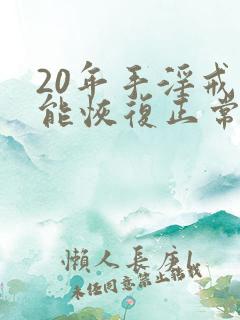 20年手淫戒
能恢復正常
懶人長庚l
未任同意禁止轉載